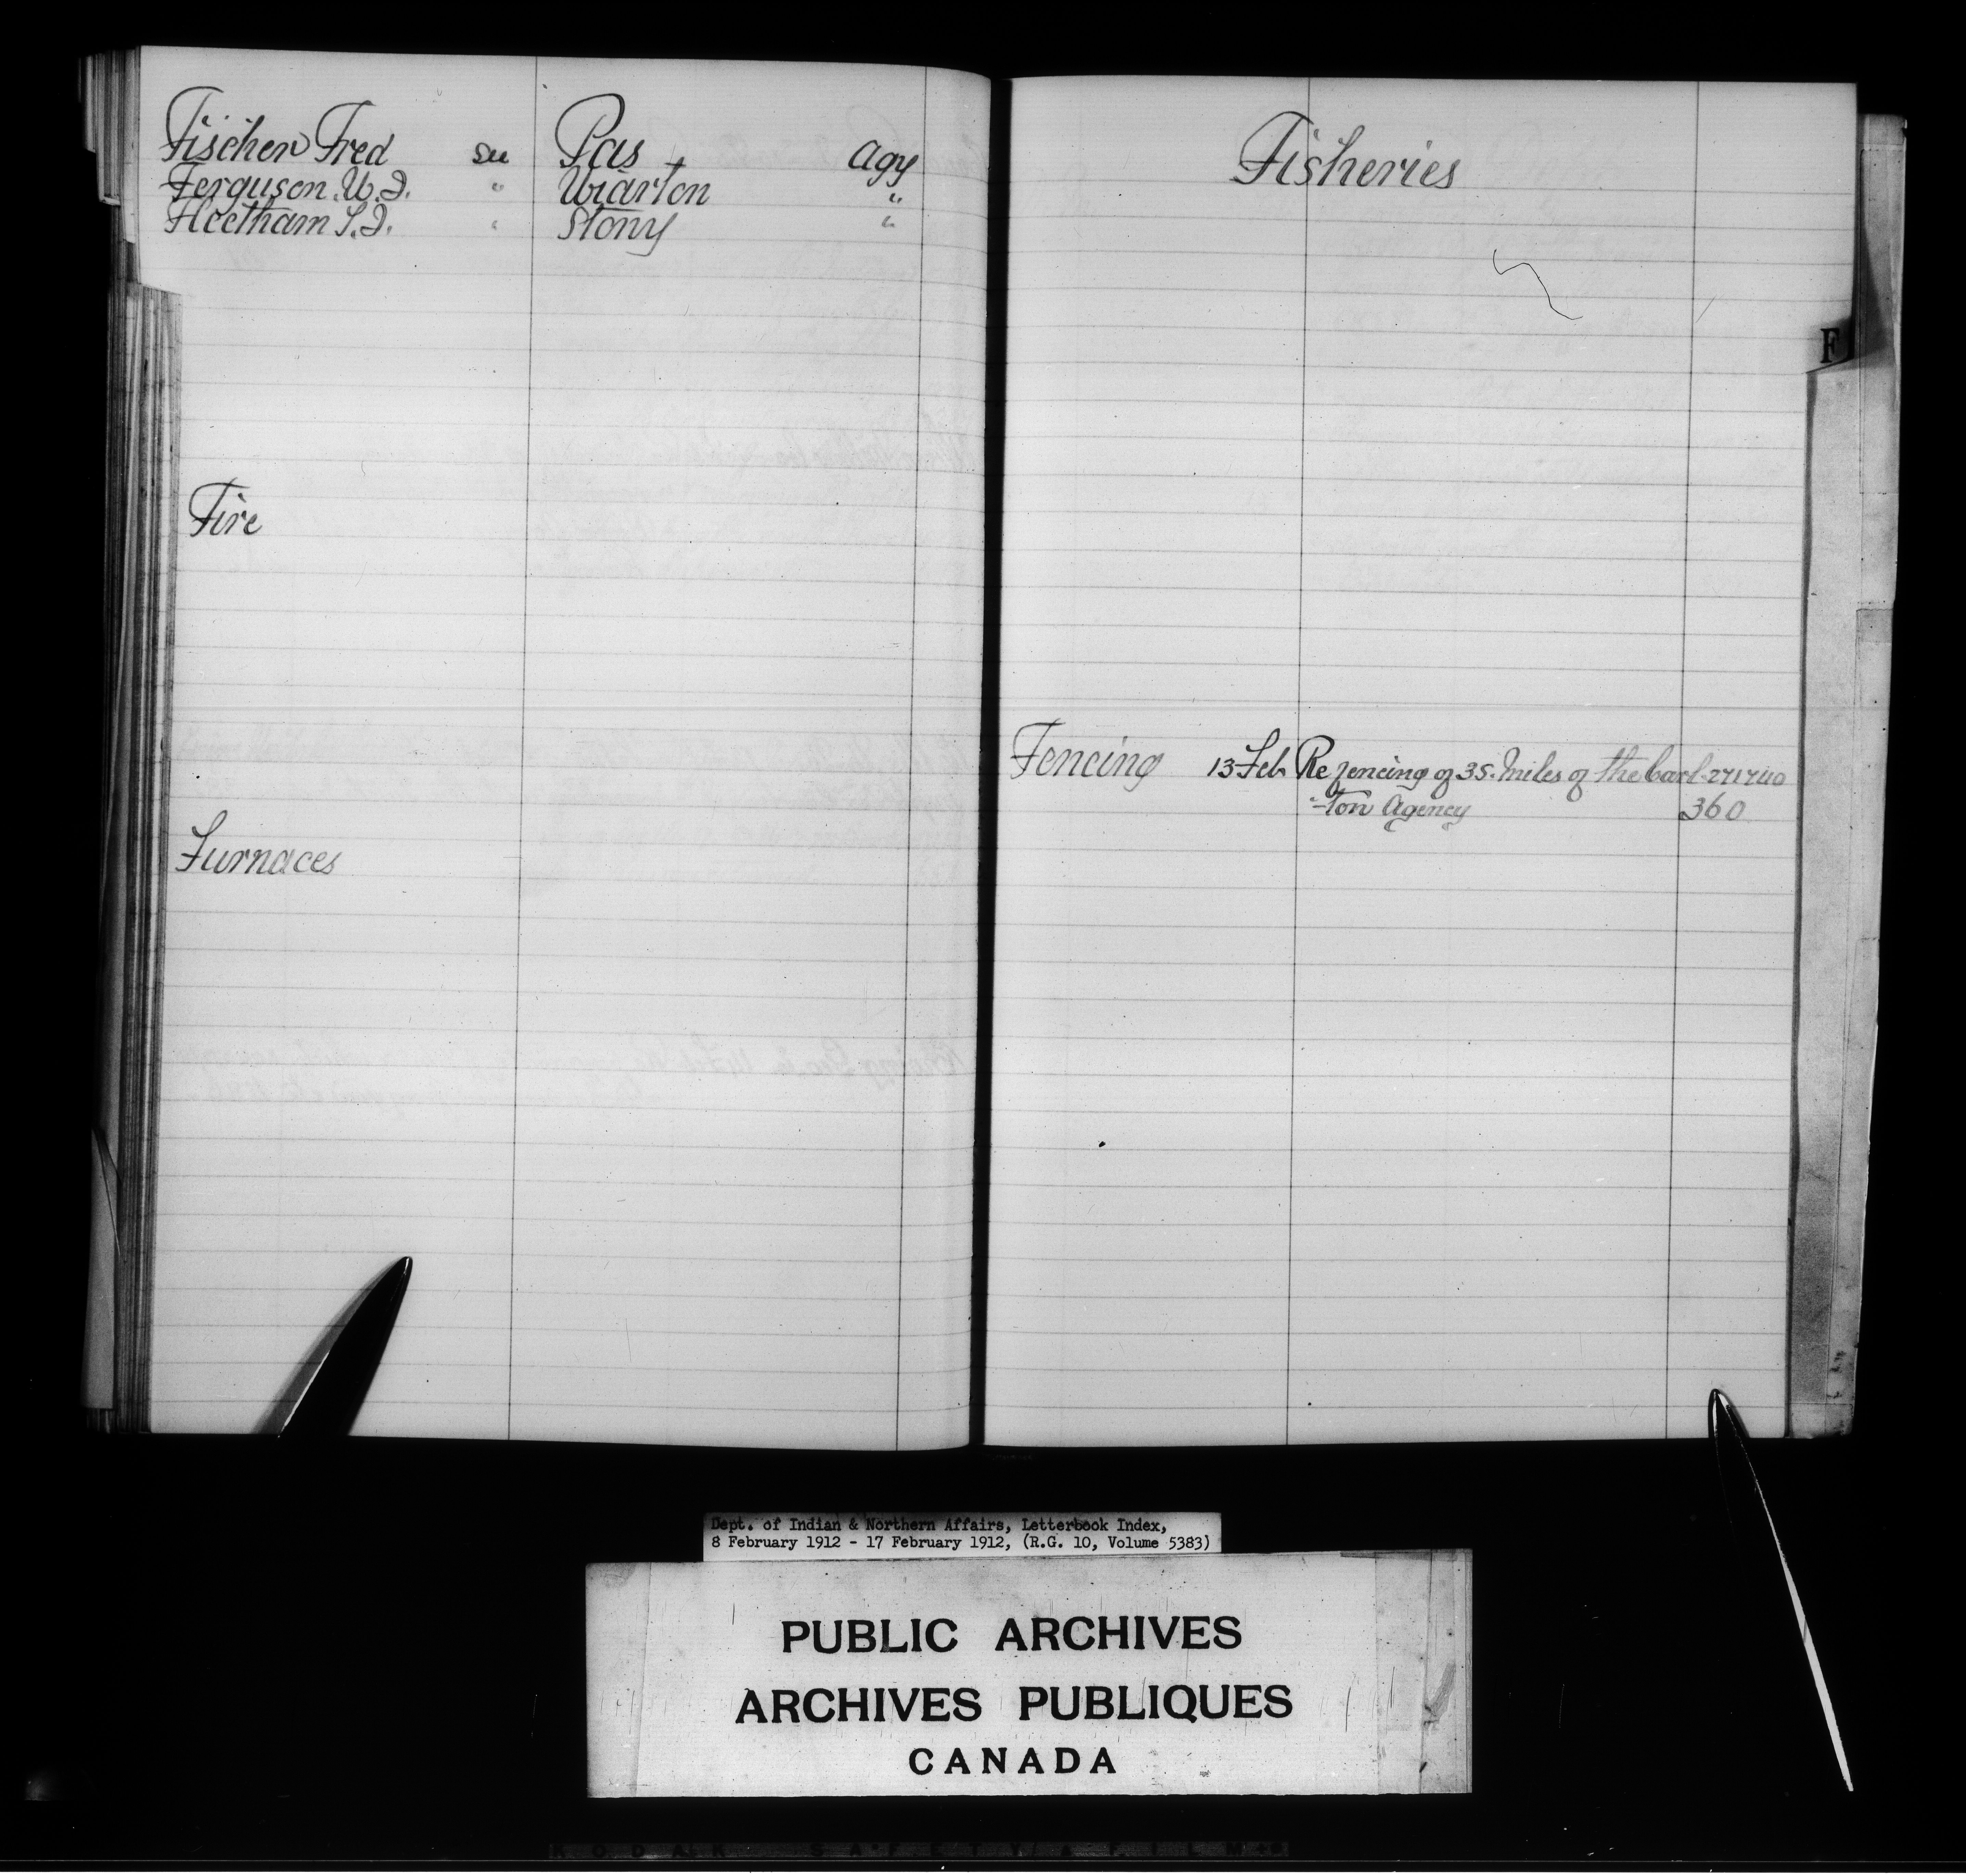 Fischer Fred see Pas Agy
Ferguson W.J. " Wiarton "
Fleetham T.J. " Stony "
Fire
Furnaces
Fisheries
F
Fencing 13 Feb Re fencing of 35 miles of the Carl- 271740
-ton Agency 360
Dept. of Indian & Northern Affairs, Letterbook Index,
8 February 1912 - 17 February 1912, (R.G. 10, Volume 5383)
PUBLIC ARCHIVES
ARCHIVES PUBLIQUES
CANADA
KODAK SAFETY FILM